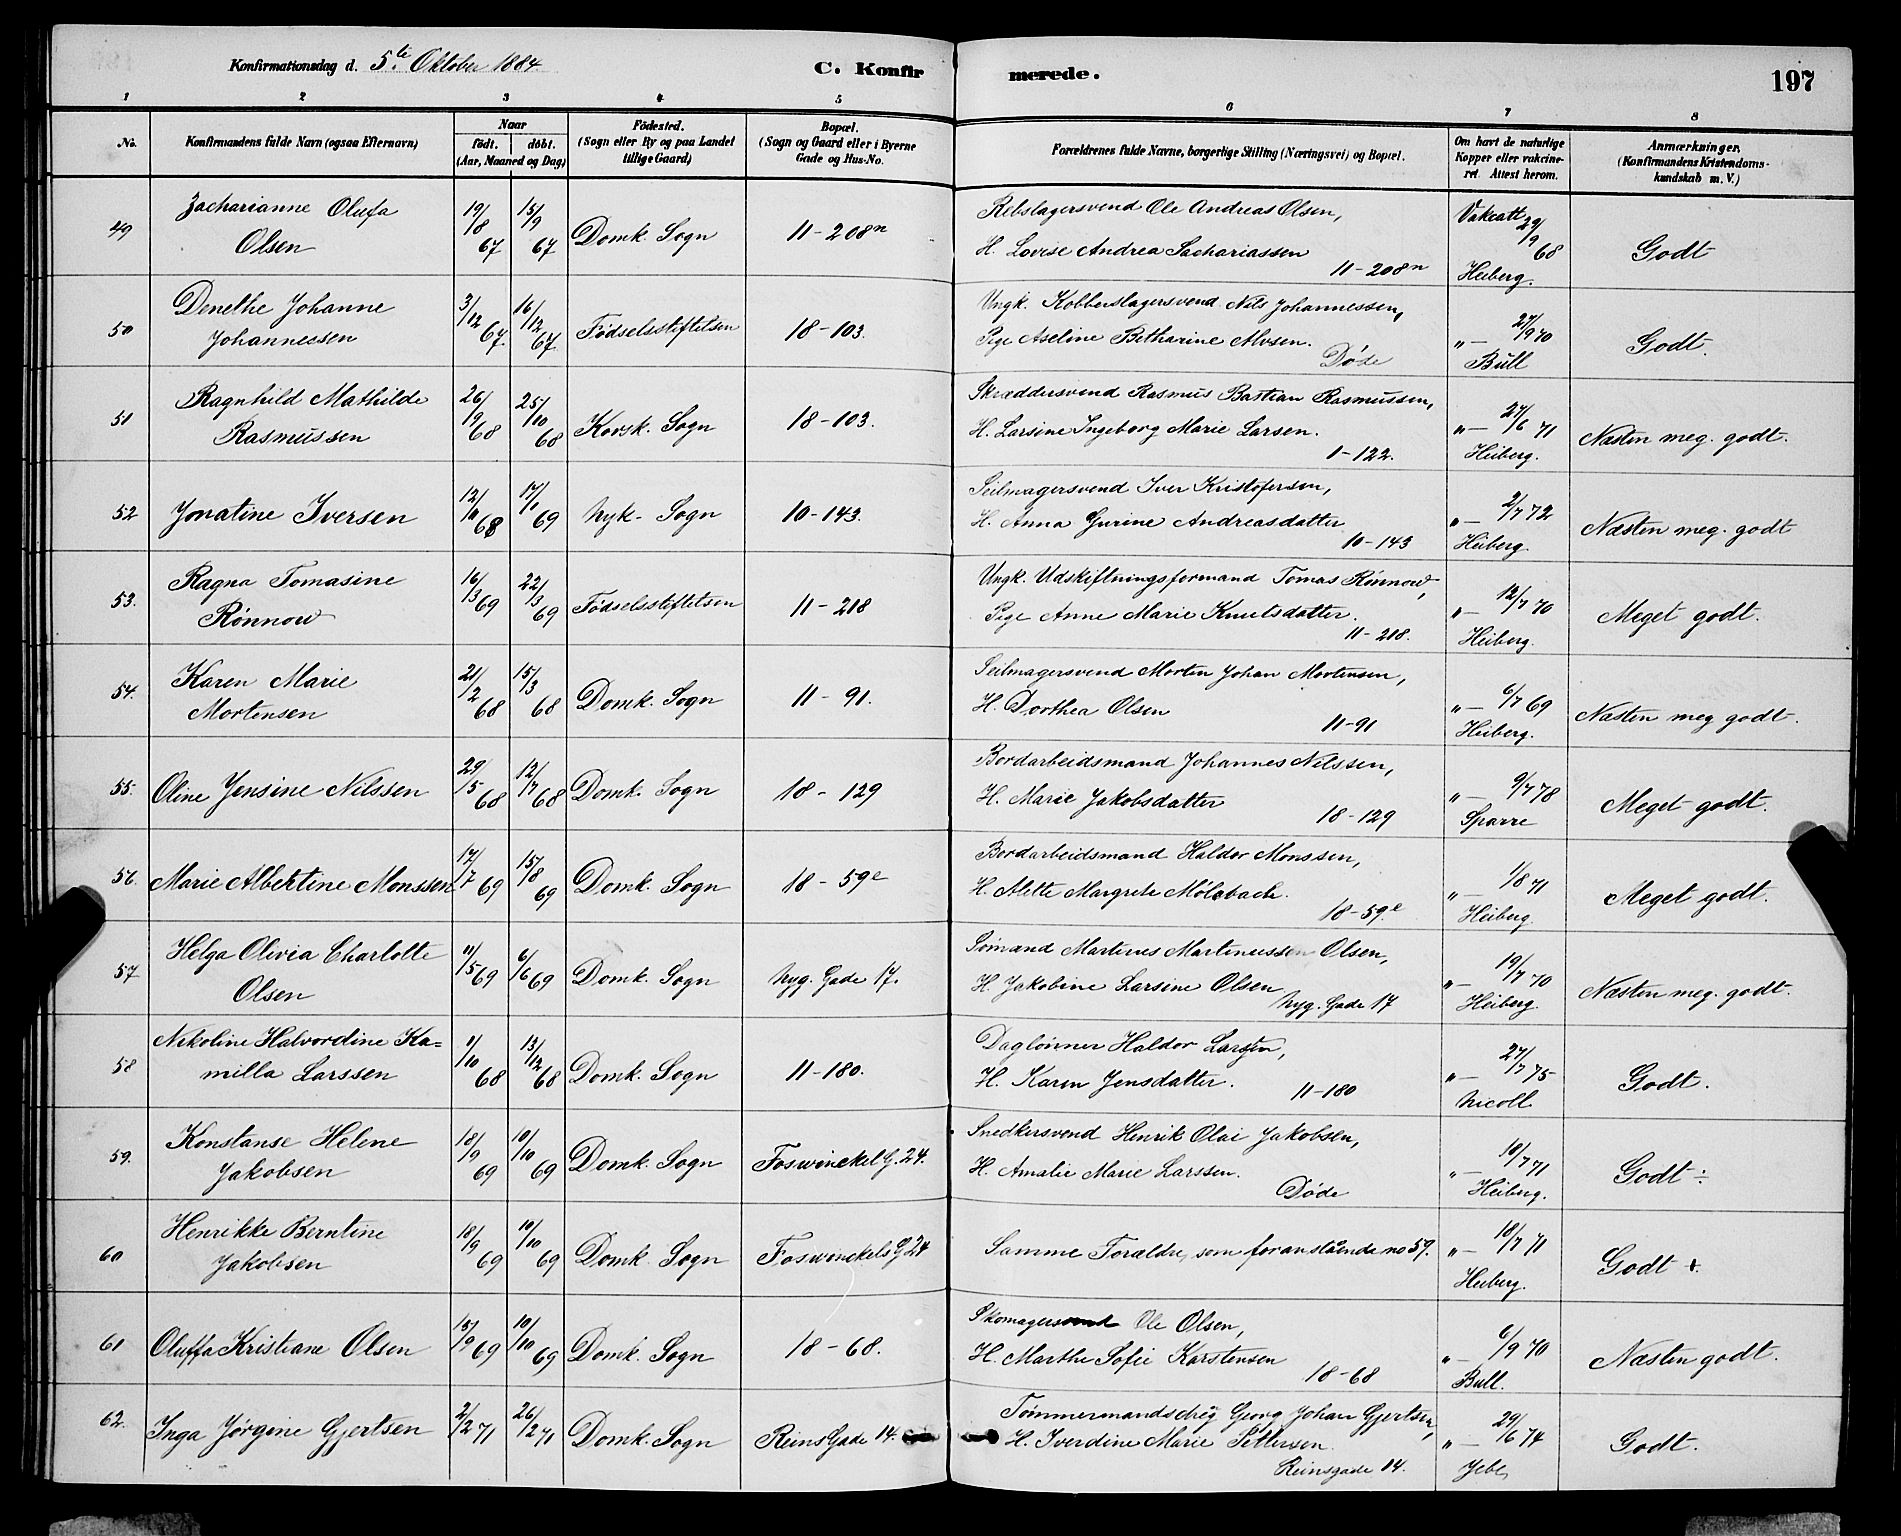 Konfirmationsdag d. 5.te Oktober 1884. C. Konfirmerede. 197
1 2 3 4 5 6 7 8
No. Konfirmandens fulde Navn (ogsaa Efternavn) Naar født. døbt. (Aar, Maaned og Dag) Fødested. (Sogn eller By og paa Landet tillige Gaard) Bopæl. (Sogn og Gaard eller i Byerne Gade og Hus-No. Forældrenes fulde Navne, borgerlige Stilling (Næringsvei) og Bopæl. Om havt de naturlige Kopper eller vakcineret. Attest herom. Anmærkninger. (Konfirmandens Kristendomskundskab m. V.)
49 Zacharianne Olufa Olsen 19/8 67 15/9 67 Domk. Sogn 11-208n Rebslagersvend Ole Andreas Olsen,
H. Lovise Andrea Sachariassen 11-208n Vakcatt 29/9 68 Heiberg. Godt
50 Denethe Johanne Johannessen 3/12 67. 16/12 67. Fødselsstiftelsen 18-103. Ungk. Kobberslagersvend Nils Johannessen,
Pige Aseline Betharine Alvsen. Døde "— 27/9 70 Bull Godt.
51 Ragnhild Mathilde Rasmussen 26/9 68 25/10 68 Korsk. Sogn 18-103. Skræddersvend Rasmus Bastian Rasmussen,
H. Larsine Ingeborg Marie Larsen. 1-122. "— 27/6 71 Heiberg. Næsten meg. godt.
52 Jonatine Iversen 12/10 68 17/1 69 Nyk- Sogn 10-143. Seilmagersvend Iver Kristofersen,
H. Anna Gurine Andreasdatter 10-143 "— 2/7 72 Heiberg. Næsten meg. godt
53. Ragna Tomasine Rønnow 16/3 69 22/3 69 Fødselsstiftelsen 11-218 Ungk. Udskiftningsformand Tomas Rønnow,
Pige Anne Marie Knutsdatter. 11-218. "— 12/7 70 Heiberg. Meget godt.
54. Karen Marie Mortensen 21/2 68 15/3 68 Domk. Sogn 11-91. Seilmagersvend Morten Johan Mortensen,
H. Dorthea Olsen 11-91 "— 6/7 69 Heiberg. Næsten meg godt.
55. Oline Jensine Nilssen 29/5 68 12/7 68 Domk. Sogn 18-129 Bordarbeidsmand Johannes Nilssen,
H. Marie Jakobsdatter 18-129 "— 9/7 78 Sparre Meget godt.
56. Marie Albertine Monssen 17/7 69 15/8 69 Domk. Sogn 18-59e Bordarbeidsmand Haldor Monssen,
H. Alette Margrete Mølsbach. 18-59.e "— 1/8 71 Heiberg. Meget godt.
57 Helga Olivia Charlotte Olsen 11/5 69 6/6 69 Domk. Sogn Nyg. Gade 17. Sømand Martinus Martinussen Olsen,
H. Jakobine Larsine Olsen Nyg. Gade 17 "— 19/7 70 Heiberg. Næsten meg. godt.
58 Nikoline Halvordine Ka=milla Larssen 11/10 68 13/12 68 Domk. Sogn 11-180. Daglønner Haldor Larsen,
H. Karen Jensdatter. 11-180 "— 27/7 75 Nicoll Godt.
59. Konstanse Helene Jakobsen 18/9 69 10/10 69 Domk. Sogn Foswinckel G. 24. Snedkersvend Henrik Olai Jakobsen,
H. Amalie Marie Larssen. Døde "— 10/7 71 Heiberg. Godt ÷
60 Henrikke Berntine Jakobsen 18/9 69 10/10 69 Domk. Sogn Foswinckels G 24 Samme Forældre, som foranstående no 59. "— 10/7 71 Heiberg. Godt +.
61 Oluffa Kristiane Olsen 15/9 69 10/10 69 Domk. Sogn 18-68. Skomagersvend Ole Olsen,
H. Marthe Sofie Karstensen 18-68 "— 6/9 70 Bull. Næsten godt.
62. Inga Jørgine Gjertsen 2/2 71 26/2 71 Domk. Sogn Reins Gade 14. Tømmermandsdreg Georg Johan Gjertsen,
H. Iverdine Marie Settersen. Reinsgade 14. "— 29/6 74 Godt.